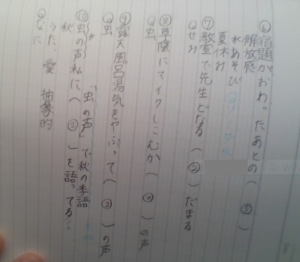 ⑥宿題がおわったあとの(③)
解放感
水あそび
夏休み
⑦教室で先生となる(②)だまる
Qせみ
⑧草陰にマイクしこんか(④)の声
Q虫
⑨露天風呂湯気をやぶって(②)の声
Q虫
⑩虫の声私に(③)を語ってる。
秋 "虫の声"で、秋の季語
うた、愛 抽象的
Qなに